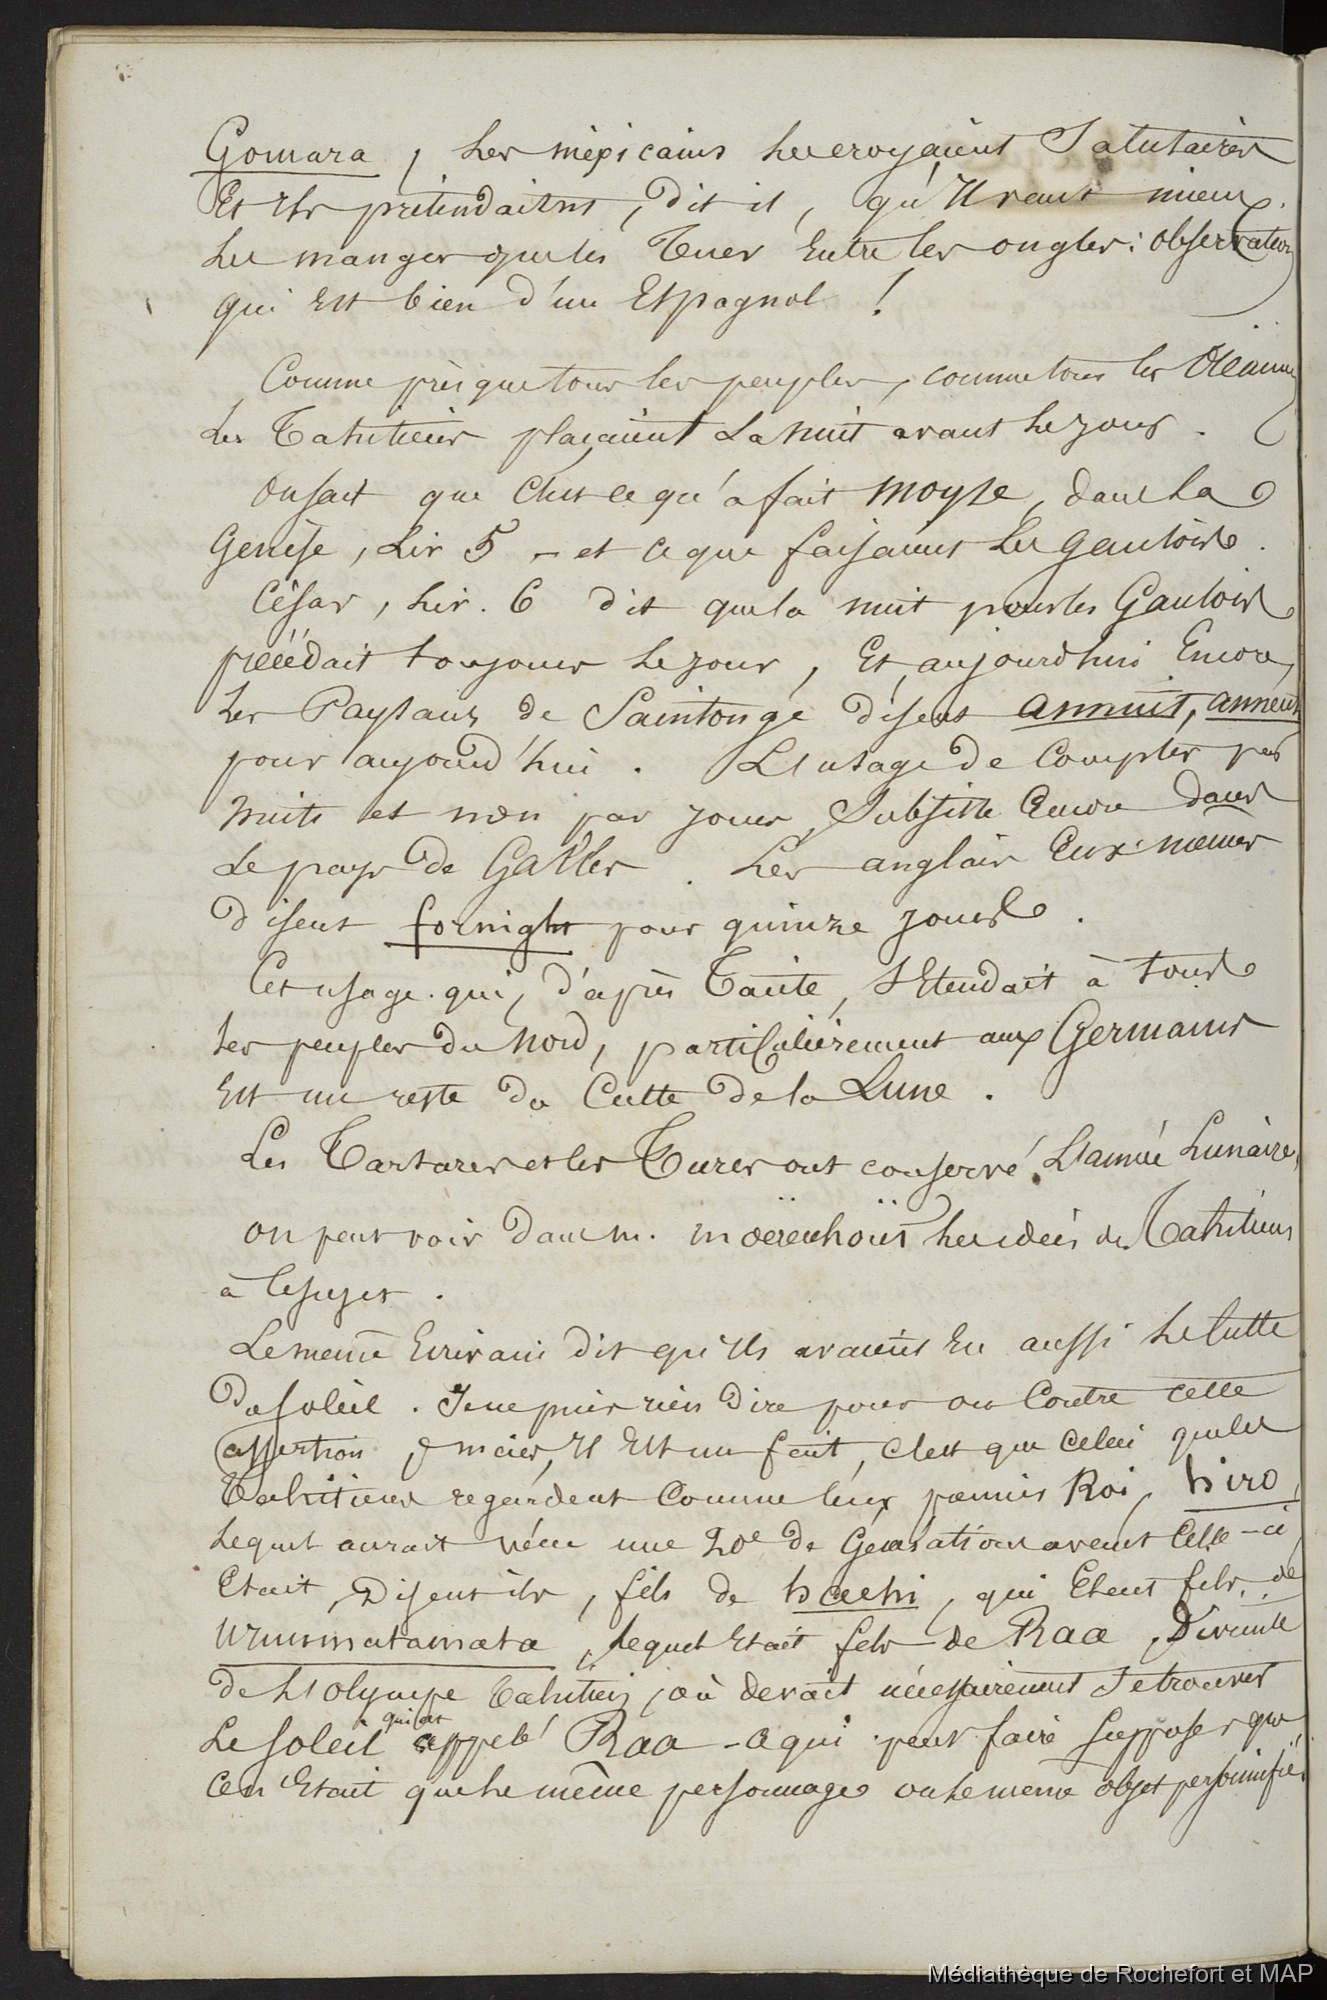 Gomara, les méxicains les croyaient salutaires
Et ils prétendaient, dit il, qu'il vaut mieux
les manger que les tuer entre les ongles: observation
qui Est bien d'un Espagnol !
Comme presque tous les peuples, comme tous les Océaniens
Les Tahitiens plaçaient La nuit avant le jour.
On sait que c'est ce qu'a fait Moyse, dans la
Genèse, Liv 5 - et ce que faisaient les gaulois.
César, liv. 6 dit que la nuit pour les Gaulois
précédait toujours le jour, Et aujourd'hui Encore,
les Paysans de Saintonge disent annuit, anneut
pour aujourd'hui. L'usage de compter par
nuits et non par jours subsiste Encore dans
Le pays de Galles. Les anglais Eux-mêmes
disent fornight pour quinze jours.
Cet usage qui, d'après Tacite, s'étendait à tous
les peuples du Nord, particulièrement aux Germains
Est un reste du Culte de la Lune.
Les Tartares et les Turcs ont conservé L'année Lunaire,
on peut voir dans M. Moërenhoüt les idées des Tahitiens
à ce sujet.
Le même Ecrivain dit qu'ils avaient Eu aussi le culte
du soleil. Je ne puis rien dire pour ou contre cette
assertion, mais, il Est un fait, c'est que celui que les
Tahitiens regardent comme leur premier Roi, hiro,
lequel aurait vécu une 20e de Générations avant celle-ci
Etait, Disent ils, fils de haehi, qui Etait fils de
Uruumatamata, lequel Etait fils de Raa, Divinité
de l'olympe tahitien, où devait nécessairement se trouver
Le soleil qui est appelé Raa - ce qui peut faire supposer que
ce n'Etait que le même personnage ou le même objet personnifié
Médiathèque de Rochefort et MAP